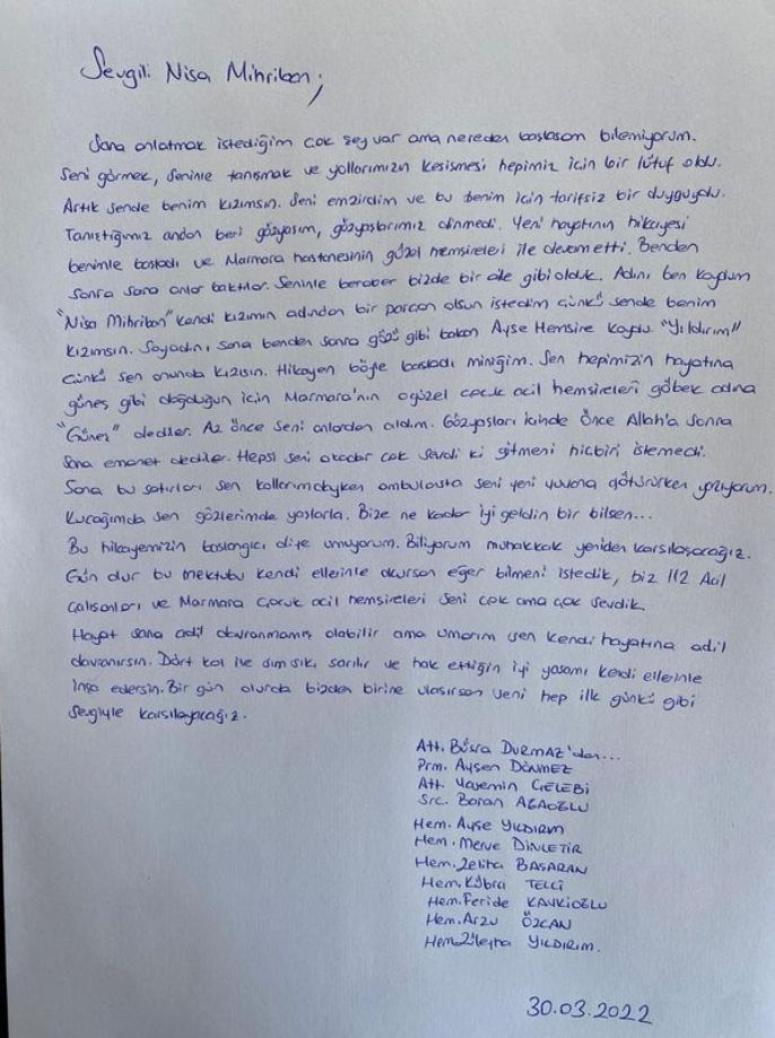 Sevgili Nisa Mihriban;
Sana anlatmak istediğim çok şey var ama nereden başlasam bilemiyorum.
Seni görmek, seninle tanışmak ve yollarımızın kesişmesi hepimiz için bir lütuf oldu.
Artık sende benim kızımsın. Seni emzirdim ve bu benim için tarifsiz bir duyguydu.
Tanıştığımız andan beri gözyaşım, gözyaşlarımız dinmedi. Yeni hayatının hikayesi
benimle başladı ve Marmara hastanesinin güzel hemşireleri ile devam etti. Benden
sonra sana onlar baktılar. Seninle beraber bizde bir aile gibi olduk. Adını ben koydum
"Nisa Mihriban" kendi kızımın adından bir parçan olsun istedim çünkü sende benim
kızımsın. Soyadını sana benden sonra gözü gibi bakan Ayşe Hemşire koydu. "Yıldırım"
çünkü sen onunda kızısın. Hikayen böyle başladı miniğim. Sen hepimizin hayatına
güneş gibi doğduğun için Marmara'nın o güzel çocuk acil hemşireleri göbek adına
"Güneş" dediler. Az önce seni onlardan aldım. Gözyaşları içinde önce Allah'a sonra
sana emanet dediler. Hepsi seni okadar çok sevdi ki gitmeni hiçbiri istemedi.
Sana bu satırları sen kollarımdayken ambulansta seni yeni yuvana götürürken yazıyorum.
Kucağımda sen gözlerimde yaşlarla. Bize ne kadar iyi geldin bir bilsen...
Bu hikayemizin başlangıcı diye umuyorum. Biliyorum muhakkak yeniden karşılaşacağız.
Gün olur bu mektubu kendi ellerinle okursan eğer bilmeni istedik, biz 112 Acil
çalışanları ve Marmara çocuk acil hemşireleri seni çok ama çok sevdik.
Hayat sana adil davranmamış olabilir ama umarım sen kendi hayatına adil
davranırsın. Dört kol ile sımsıkı sarılır ve hak ettiğin iyi yaşamı kendi ellerinle
inşa edersin. Bir gün olurda bizden birine ulaşırsan seni hep ilk günkü gibi
sevgiyle karşılayacağız.
Att. Büşra DURMAZ'dan...
Prm. Ayşen DÖNMEZ
Att. Yasemin ÇELEBİ
Src. Boran AĞAOĞLU
Hem. Ayşe YILDIRIM
Hem. Merve DİNLETİR
Hem. Zeliha BAŞARAN
Hem. Kübra TELLİ
Hem. Feride KAVKIOĞLU
Hem. Arzu ÖZCAN
Hem. Züleyha YILDIRIM.
30.03.2022